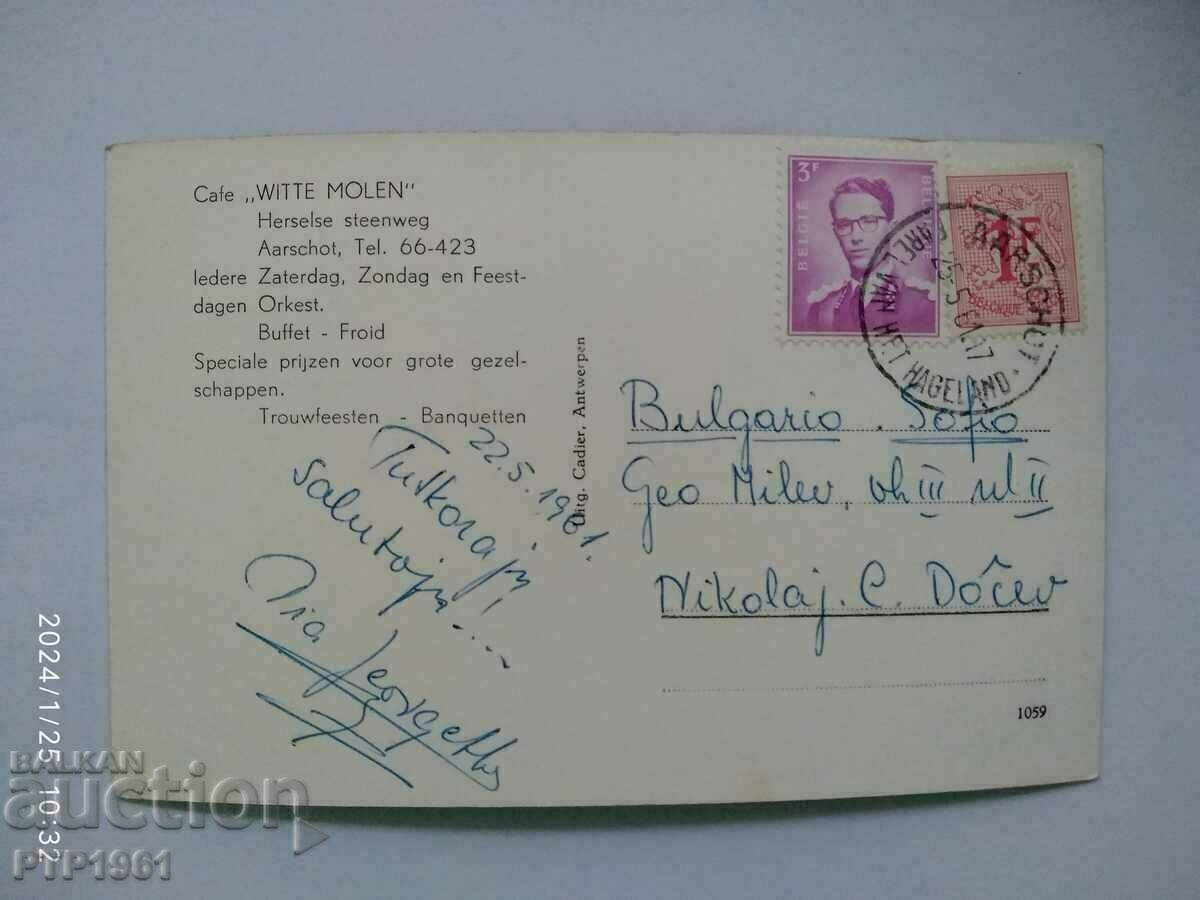 Cafe „WITTE MOLEN"
Herselse steenweg
Aarschot, Tel. 66-423
Iedere Zaterdag, Zondag en Feest-
dagen Orkest.
Buffet - Froid
Speciale prijzen voor grote gezel-
schappen.
Trouwfeesten - Banquetten
22.5.1961.
Tutkoraj,
salutojn....
Via Georgette
Uitg. Cadier, Antwerpen
3F
BELGIË
BELGIQUE
1F
BELGIQUE
AARSCHOT
PAREL VAN HET HAGELAND
Bulgario. Sofio
Geo Milev, vh III ul II
Nikolaj. C. Dočev
1059
2024/1/25 10:32
BALKAN
auction
PTP1961